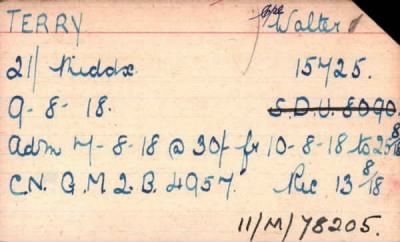 TERRY Cpl Walter
21/ Middx. 15725.
9-8-18. S.D.U. 8090
Adm 7-8-18 @ 30/- fr 10-8-18 to 25/8/18
C.N. G.M.2.B. 4957. Rec. 13/8/18
11/M/78205.